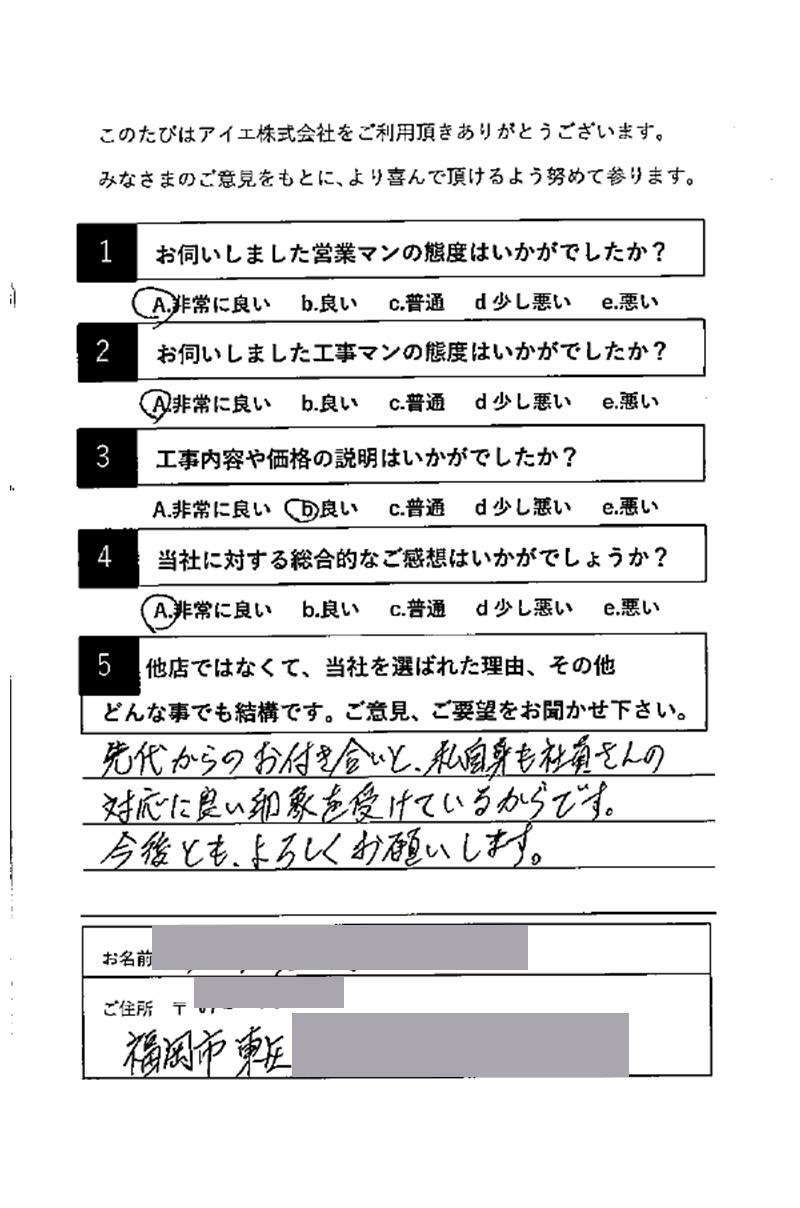 このたびはアイエ株式会社をご利用頂きありがとうございます。
みなさまのご意見をもとに、より喜んで頂けるよう努めて参ります。
1 お伺いしました営業マンの態度はいかがでしたか？
A.非常に良い b.良い c.普通 d少し悪い e.悪い
2 お伺いしました工事マンの態度はいかがでしたか？
A.非常に良い b.良い c.普通 d少し悪い e.悪い
3 工事内容や価格の説明はいかがでしたか？
A.非常に良い b良い c.普通 d少し悪い e.悪い
4 当社に対する総合的なご感想はいかがでしょうか？
A.非常に良い b.良い c.普通 d少し悪い e.悪い
5 他店ではなくて、当社を選ばれた理由、その他
どんな事でも結構です。ご意見、ご要望をお聞かせ下さい。
先代からのお付き合いと、私自身も社員さんの
対応に良い印象を受けているからです。
今後とも、よろしくお願いします。
お名前
ご住所 〒
福岡市東区